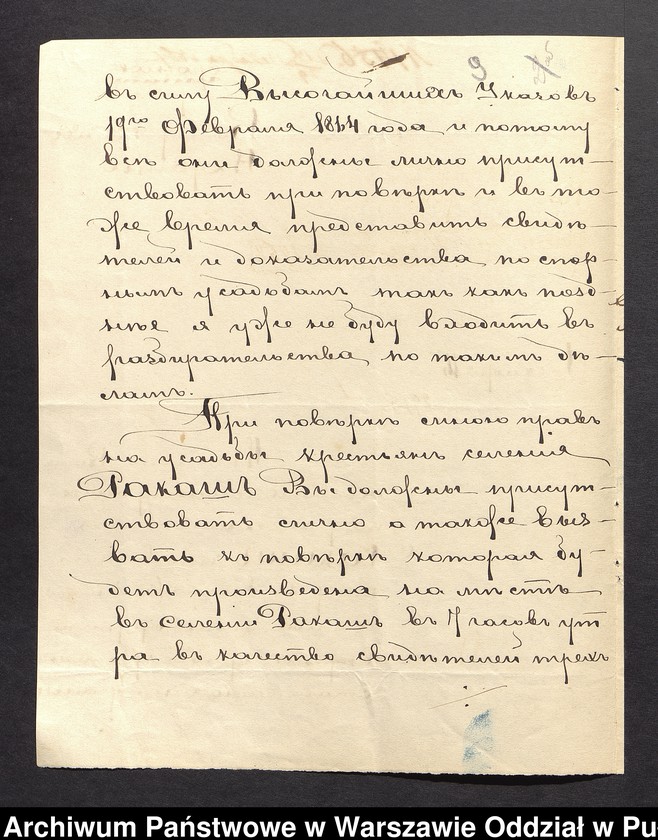 9
въ силу Высочайшихъ Указовъ
19го Февраля 1864 года и потому
всѣ они должны лично присут-
ствовать при повѣрки и въ то-
же время представить свидѣ-
телей и доказательства, по спор-
нымъ усадьбамъ такъ какъ позд-
нѣе я уже не буду входить въ
разбирательства по такимъ дѣ-
ламъ.
При повѣркѣ мною правъ
на усадьбы крестьянъ селенія
Ракашъ Вы должны присут-
ствовать лично а также выз-
вать къ повѣркѣ которая бу-
детъ произведена на мѣстѣ
въ селеніи Ракашъ въ 7 часовъ ут
ра въ качество свидѣтелей трехъ
Archiwum Państwowe w Warszawie Oddział w Pu